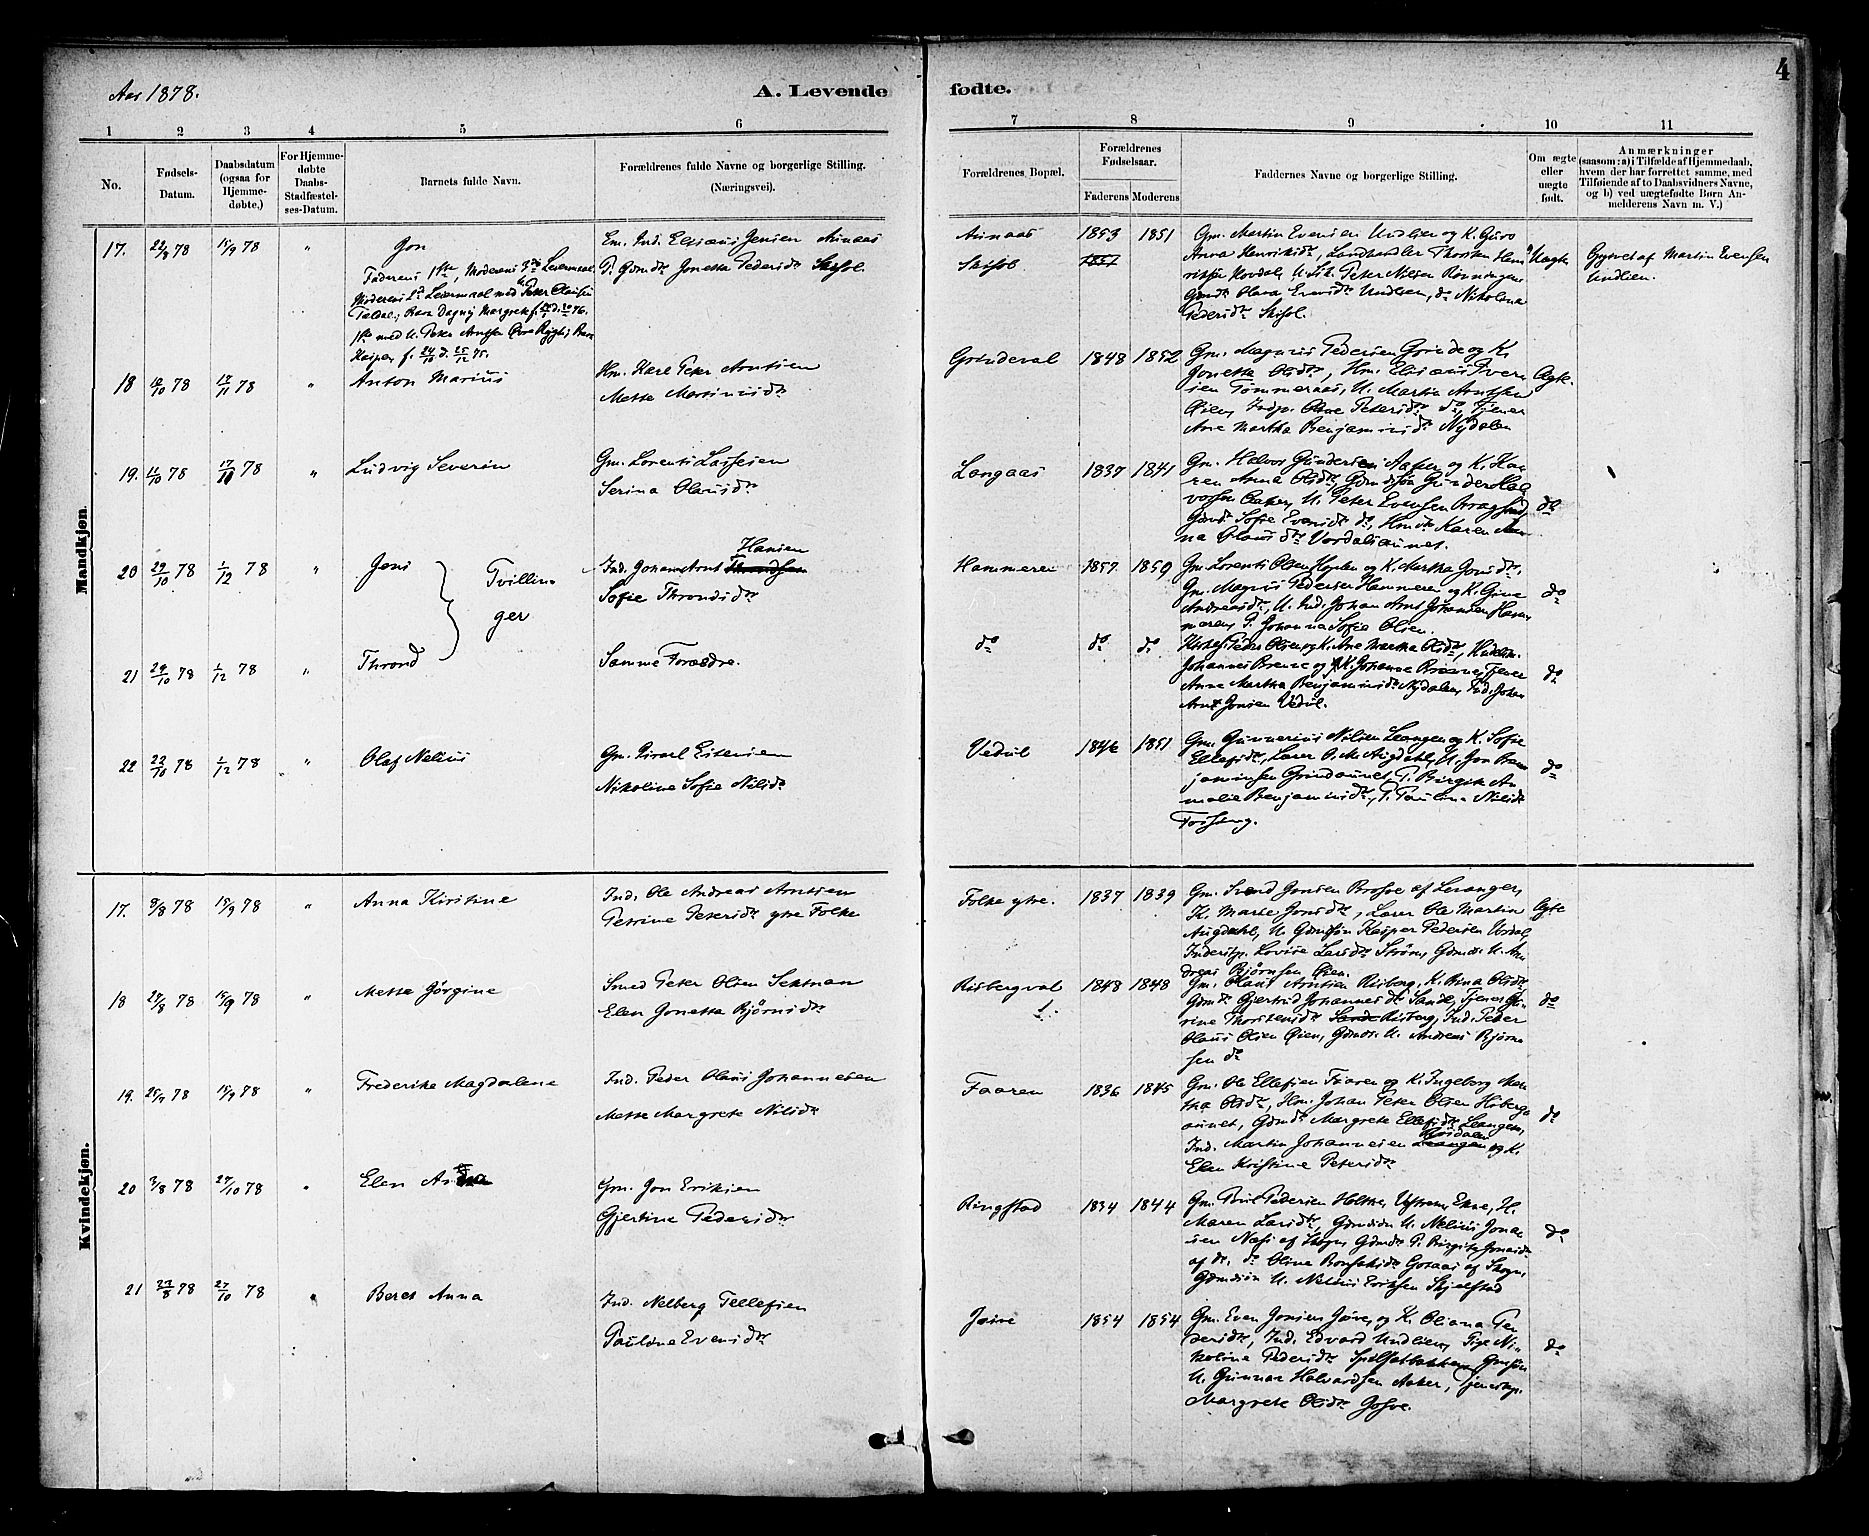 Aar 1878.
A. Levende fødte.
4
1 2 3 4 5 6 7 8 9 10 11
No.
Fødsels-Datum.
Daabsdatum (ogsaa for Hjemme-døbte.)
For Hjemme-døbte Daabs-Stadfæstel-ses-Datum.
Barnets fulde Navn.
Forældrenes fulde Navne og borgerlige Stilling.
(Næringsvei).
Forældrenes Bopæl.
Forældrenes Fødselsaar.
Faderens Moderens
Faddernes Navne og borgerlige Stilling.
Om ægte eller uægte født.
Anmærkninger
(saasom: a) i Tilfælde af Hjemmedaab,
hvem der har forrettet samme, med
Tilføiende af to Daabsvidners Navne,
og b) ved uægtefødte Børn An-
melderens Navn m. V.)
Mandkjøn.
17. 22/8 78 15/9 78 " Jon
Faderens 1ste, Moderens 3die Leiermaal.
Moderens 2det Leiermaal med Peter Olausen
Barn Dagny Margrete
1ste med U. Peter Arntsen
Kasper f. 24/10 d. 25/12 75.
Em. Ind. Elisæus Jensen Aunaas
P. Gdmdr Jonetta Pedersdr Skjsol.
Aunaas 1853 1851
Skisol 1851
Gm. Martin Evensen Undlien og K. Guro
Anna Henriksdr, Landhandler Thorsten Hen
riksen Hovdal, U. Peter Nilsen Rønningen
Gdmdr Olava Evensdr Undlien, do Nikolina
Pedersdr Skisol.
Uægte
Opgivet af Martin Evensen
Undlien.
18 10/10 78 17/11 78 " Anton Marius
Hm. Karl Peter Arntsen
Mette Martinusdr
Grindeval 1848 1852
Gm. Magnus Pedersen Grinde og K.
Jonetta Olsdr, Hm. Elisæus Iver
sen Tømmeraas, U. Martin Arntsen
Øien, Indp. Oline Petersdr do, Tjener
Ane Martha Benjaminsdr Nydalen
Ægte.
19. 11/10 78 17/11 78 " Ludvig Severin
Gm. Lorents Lassesen
Serina Olausdr
Langaas 1837 1841
Gm. Halvor Gundersen Aaker og K. Ka
ren Anna Olsdr, Gdmdsøn Gunder Hal
vorsen Aaker, U. Peter Evensen
Gdmdr Sofie Evensdr do, Hmdr Karen An
na Olausdr Vordalsaunet.
do
20 29/10 78 1/12 78 " Jens
Tvillinger
Ind. Johan Arnt Hansen
Sofie Throndsdr
Hammeren 1857 1859
Gm. Lorents Olsen Koplen og K. Martha Jonsdr,
Gm. Magnus Pedersen Hammeren og K. Gine
Andreasdr, U. Ind. Johan Arnt Johansen Ham
meren, P. Johanna Sofie Olsen.
do
21 29/10 78 1/12 78 " Thrond
Samme Forældre.
do do do
Peder Olsen og K. Ane Martha Olsdr,
Johannes Brenne og K. Johanna Brenne, Tjener
Anne Martha Benjaminsdr Nydalen, Ind. Johan
Arnt Jonsen Vedul.
do
22 22/10 78 1/12 78 " Olaf Nelius
Gm. Eitersen
Nikoline Sofie Nilsdr
Vedul 1846 1851
Gm. Gunnerius Nilsen Leangen og K. Sofie
Ellefsdr, Lærer O. M. Augdahl, U. Jon Ben
jaminsen Grindaunet, P. Birgitte A
malie Benjaminsdr, P. Pauline Nilsdr
Forsberg.
do
Kvindekjøn.
17. 8/8 78 15/9 78 " Anna Kirstine
Ind. Ole Andreas Arntsen
Petrine Petersdr ytre Folke
Folke ytre. 1837 1839
Gm. Svend Jonsen Brosve af Levanger,
K. Marte Jonsdr, Lærer Ole Martin
Augdahl, U. Gdmdsøn Kasper Pedersen Vordal,
Inderstp. Lovise Larsdr Strøm, Gdmds. U. An
dreas Bjørnsen Øien.
Ægte
18 27/8 78 15/9 78 " Mette Jørgine
Smed Peter Olsen Sektnan
Elen Jonetta Bjørnsdr
Risbergval 1848 1848
Gm. Olaus Arntsen Risberg, K. Rina Olsdr
Gdmdr Gjertrud Johannesdr Sande, Tjener
rine Thorstensdr Sande Risberg, Ind. Peder
Olaus Olsen Øien, Gdmds. U. Andreas Bjørn
sen do
do
19. 78 15/9 78 " Frederikke Magdalene
Ind. Peder Olaus Johannesen
Mette Margrete Nilsdr
Faaren 1836 1845
Gm. Ole Ellefsen Faaren og K. Ingeborg Mar
tha Olsdr, Hm. Johan Peter Olsen Høberg
aunet, Gdmdr Margrete Ellefsdr Leangen,
Ind. Martin Johannesen Leangen og K.
Elen Kristine Petersdr
do
20 3/8 78 27/10 78 " Elen
Gm. Jon Eriksen
Gjertine Pedersdr
Ringstad 1834 1844
Gm. Poul Pedersen Holthe, Ekne, K.
Maren Larsdr, Gdmdsøn U. Nelius Jona
sen Næss af Skogn, Gdmdr P. Birgitte Jonasdr
af do, do Oline Gotaas af Skogn,
Gdmdsøn U. Nelius Eriksen Skjelstad
do
21 27/8 78 27/10 78 " Beret Anna
Ind. Nelberg Tellefsen
Pauline Evensdr
Jøsve 1854 1854
Gm. Even Jonsen Jøsve, og K. Oliana Pe
dersdr, Ind. Edvard Undlien, Pige Ni
koline Pedersdr, Gmsøn
U. Gunnar Halvardsen Aaker, Tjenestp.
Margrete Olsdr Jøsve.
do